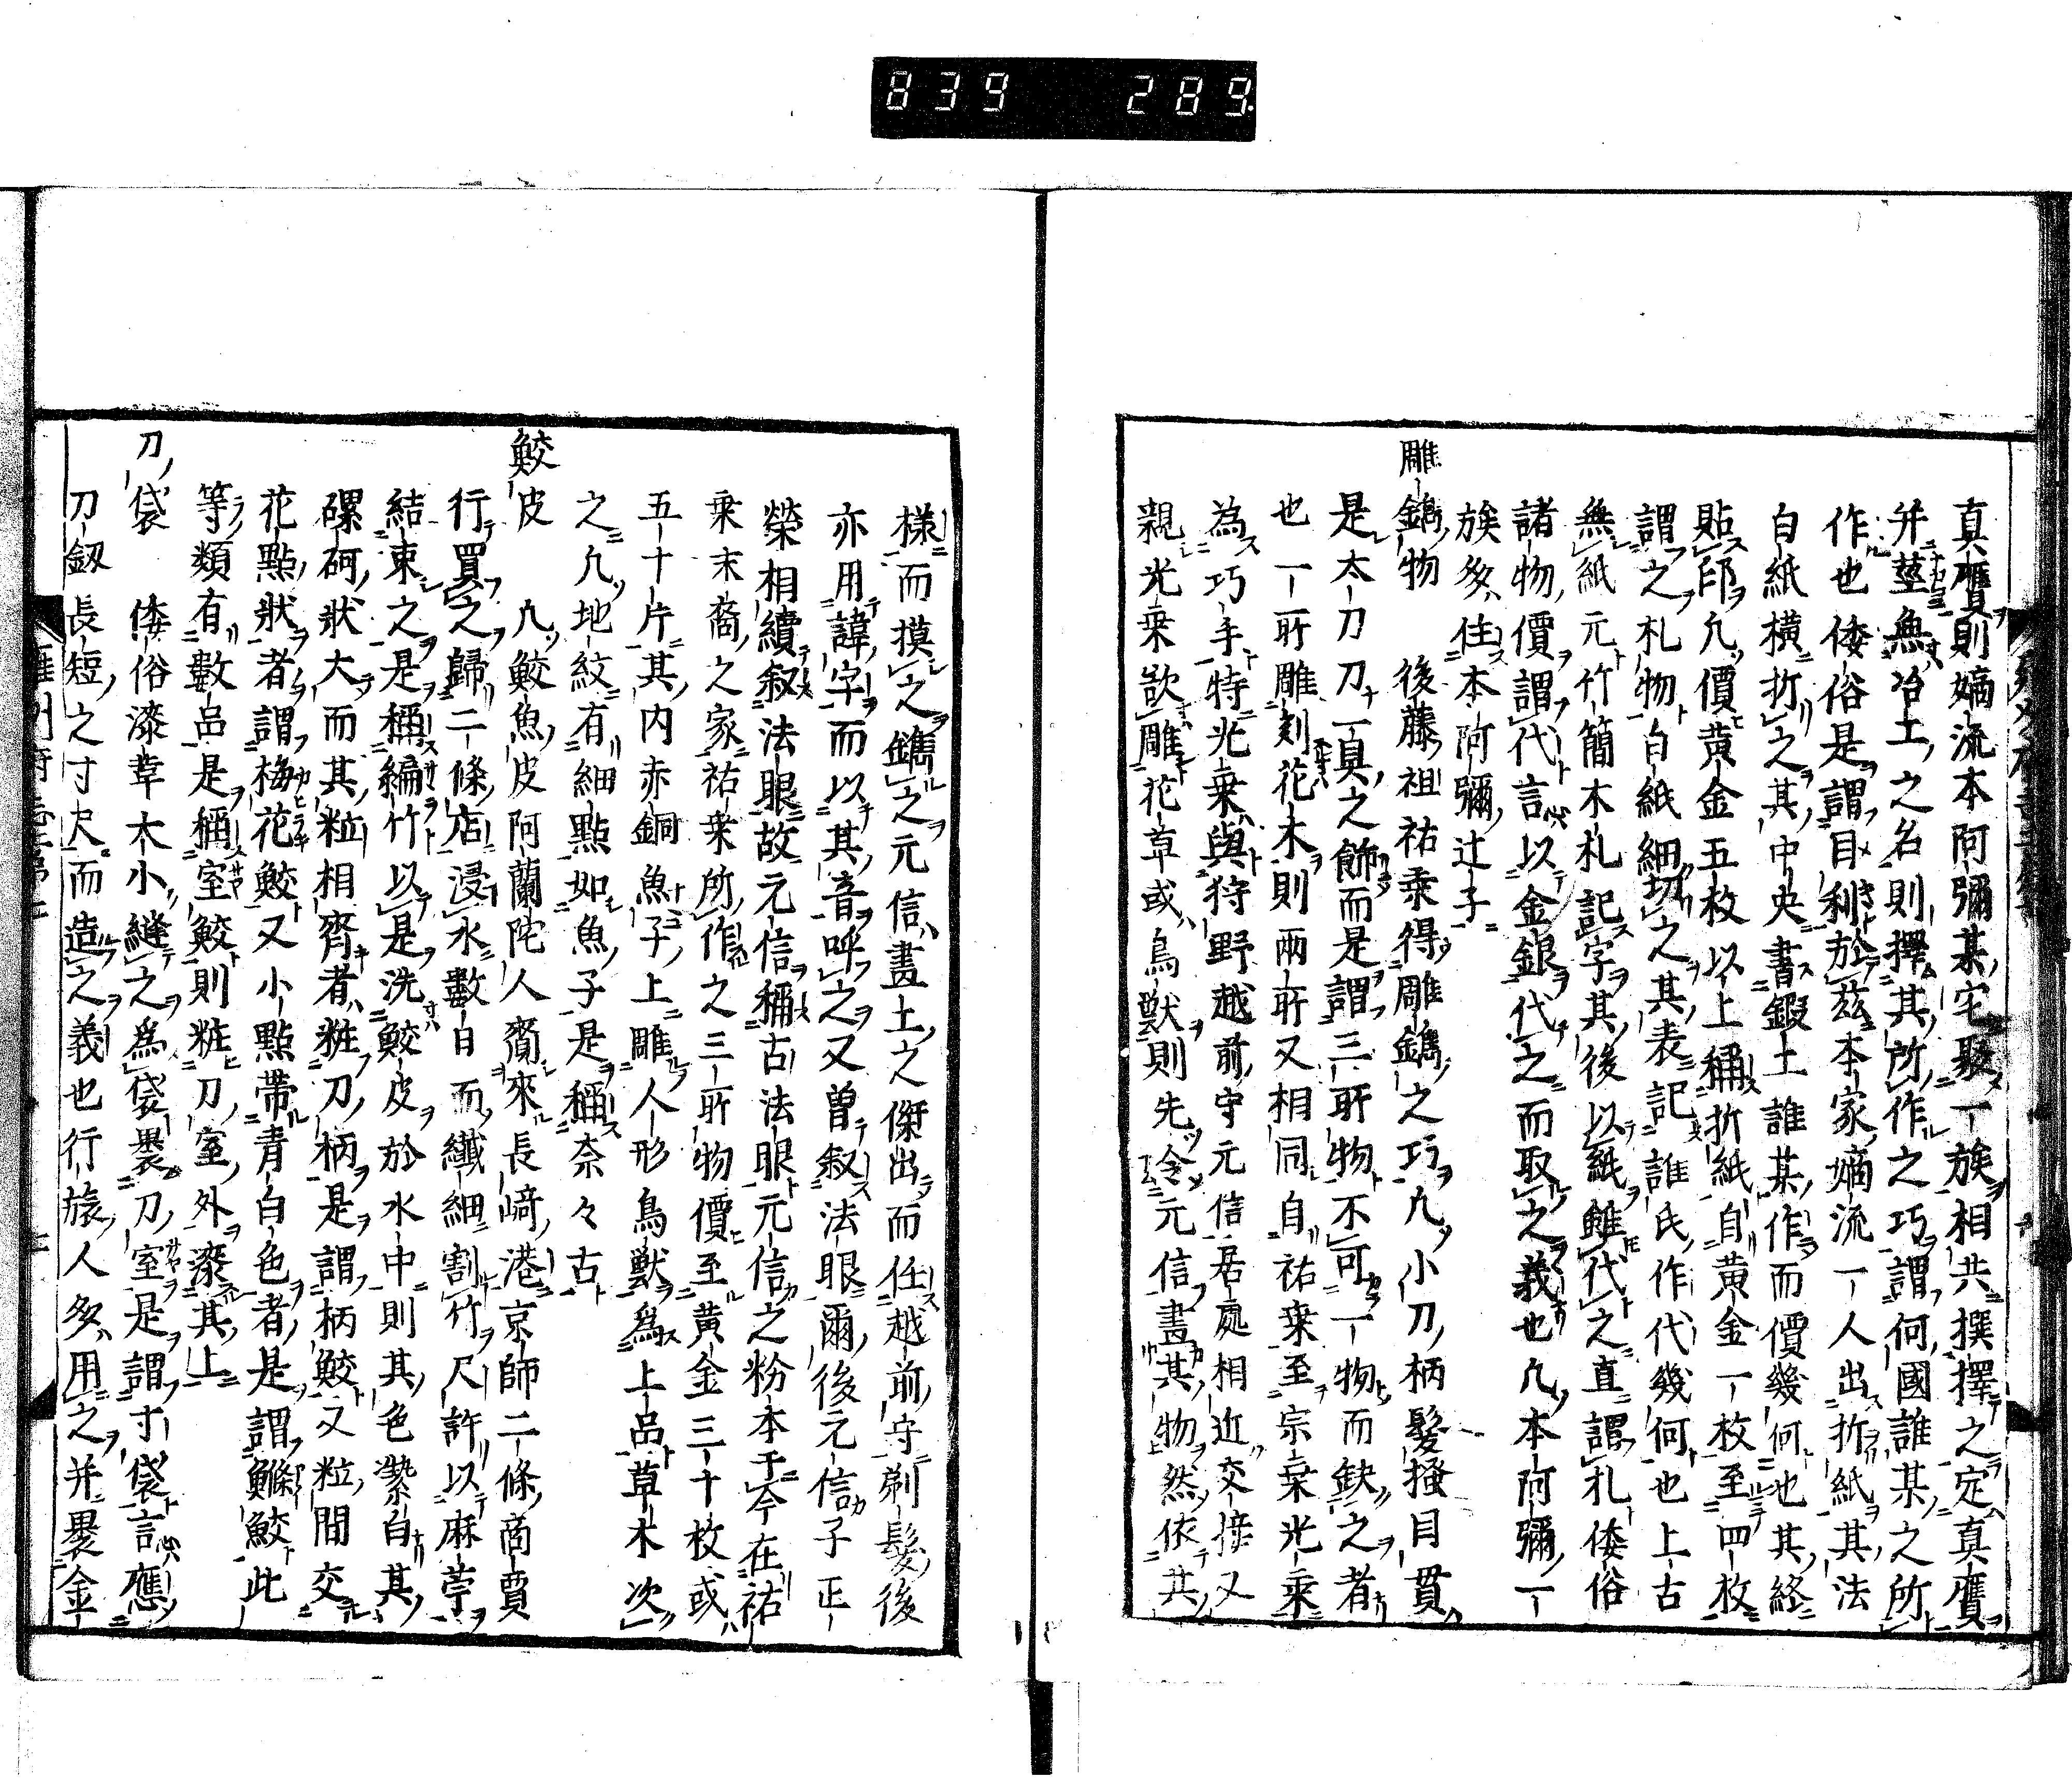 839 289
真贗則嫡流本阿彌某宅聚一族相共撰擇之定真贗
并莖無冶工之名則擇其所作之巧謂何國誰某之所
作也倭俗是謂目利於茲本家嫡流一人出折紙其法
白紙横折之其中央書鍜工誰某作而價幾何也其終
貼印凢價黄金五枚以上稱折紙自黄金一枚至四枚
謂之札物白紙細切之其表記誰氏作代幾何也上古
無紙元竹簡木札記字其後以紙雖代之直謂札倭俗
諸物價謂代言以金銀代之而取之義也凢本阿彌一
族多住本阿彌辻子
雕鐫物 後藤祖祐乘得雕鐫之巧凢小刀柄髪搔目貫
是太刀刀一具之餙而是謂三所物不可一物而缺之者
也一所雕刻花木則兩所又相同自祐乗至宗乗光乗
為巧手特光乗與狩野越前守元信居處相近交接又
親光乗欲雕花草或鳥獣則先令元信畫其物然依其
樣而摸之鐫之元信畫土之傑出而任越前守剃髪後
亦用諱字而以其音呼之又曽叙法眼爾後元信子正
榮相續叙法眼故元信稱古法眼元信之粉本于今在祐
乗末裔之家祐乗所作之三所物價至黄金三十枚或
五十片其内赤銅魚子上雕人形鳥獣為上品草木次
之凢地紋有細點如魚子是稱奈々古
鮫皮 凢鮫魚皮阿蘭陀人齎來長﨑港京師二條商賈
行買之歸二條店浸水數日而纎細割竹尺許以麻苧
結束之是稱編竹以是洗鮫皮於水中則其色潔白其
磥砢狀大而其粒相齊者粧刀柄是謂柄鮫又粒間交
花點狀者謂梅花鮫又小點帶青白色者是謂鰷鮫此
等類有數品是稱室鮫則粧刀室外漆其上
刀袋 倭俗漆韋大小縫之爲袋褁刀室是謂寸袋言應
刀釼長短之寸尺而造之義也行旅人多用之并褁金